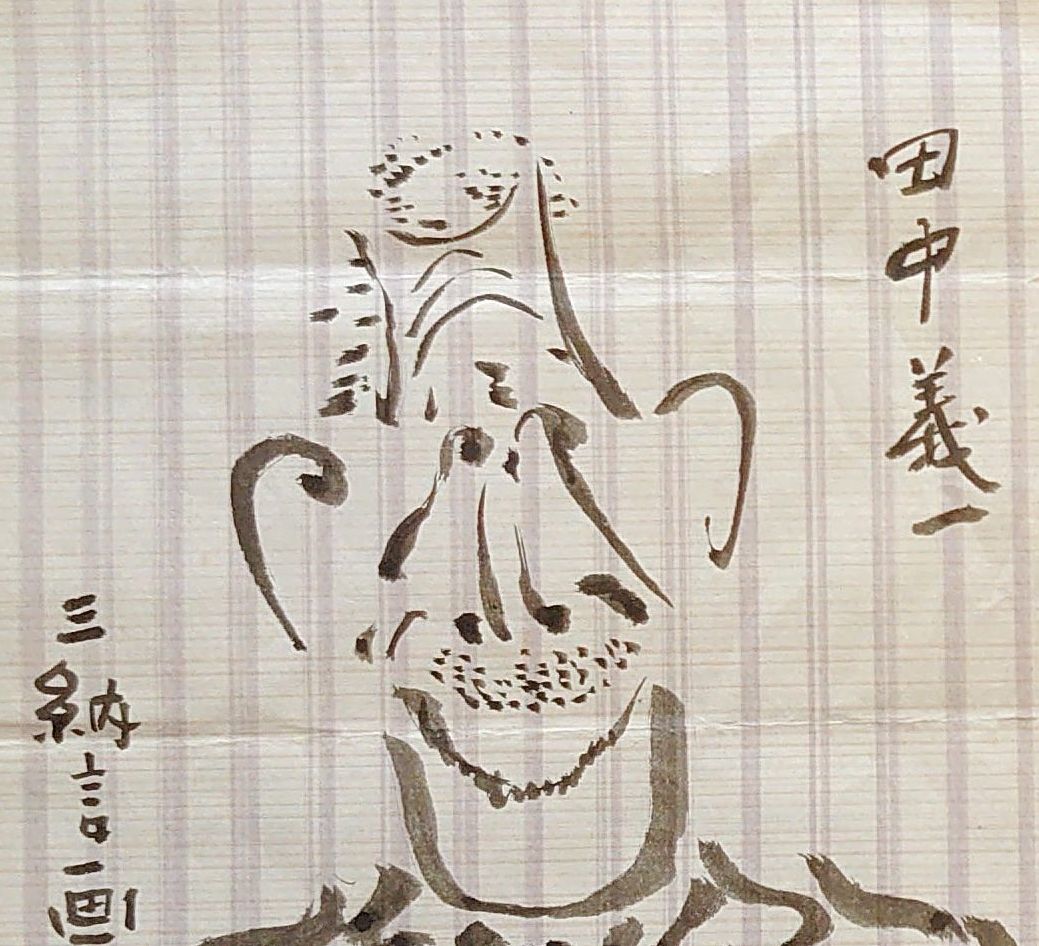 田中義一
三納言画